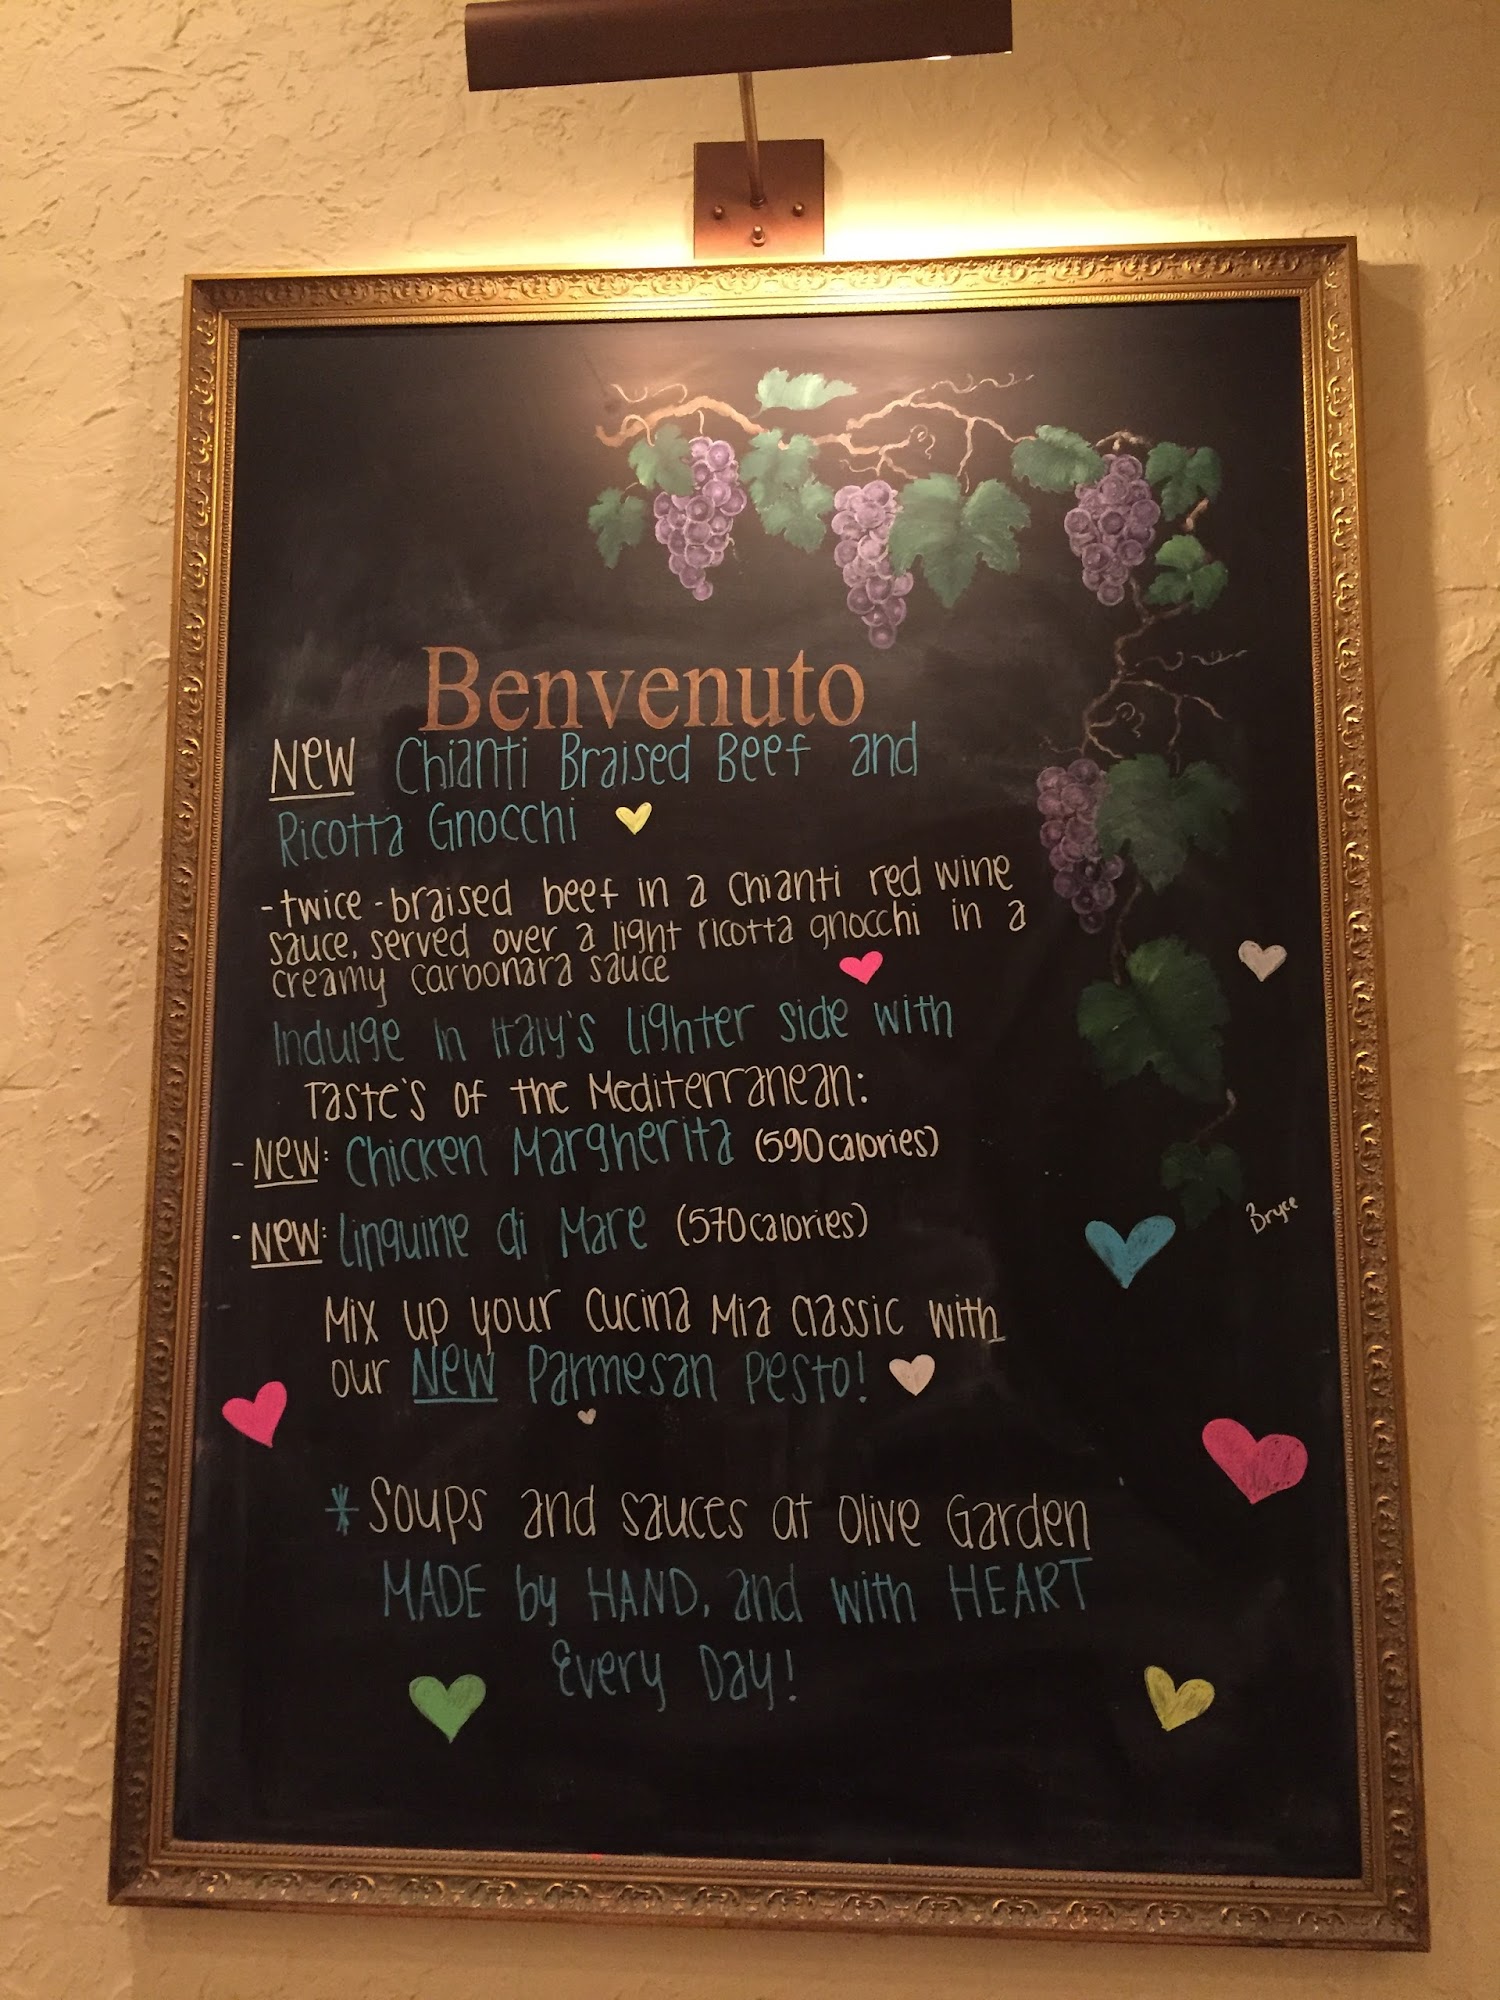 Benvenuto
New Chianti Braised Beef and
Ricotta Gnocchi
- twice - braised beef in a Chianti red wine
sauce, served over a light ricotta gnocchi in a
creamy carbonara sauce
Indulge in Italy's lighter side with
Taste's of the Mediterranean:
- New: Chicken Margherita (590 calories)
- New: Linguine di Mare (570 calories)
Mix up your Cucina Mia classic with
our New Parmesan Pesto!
* Soups and sauces at Olive Garden
MADE by HAND, and with HEART
Every Day!
Bryce